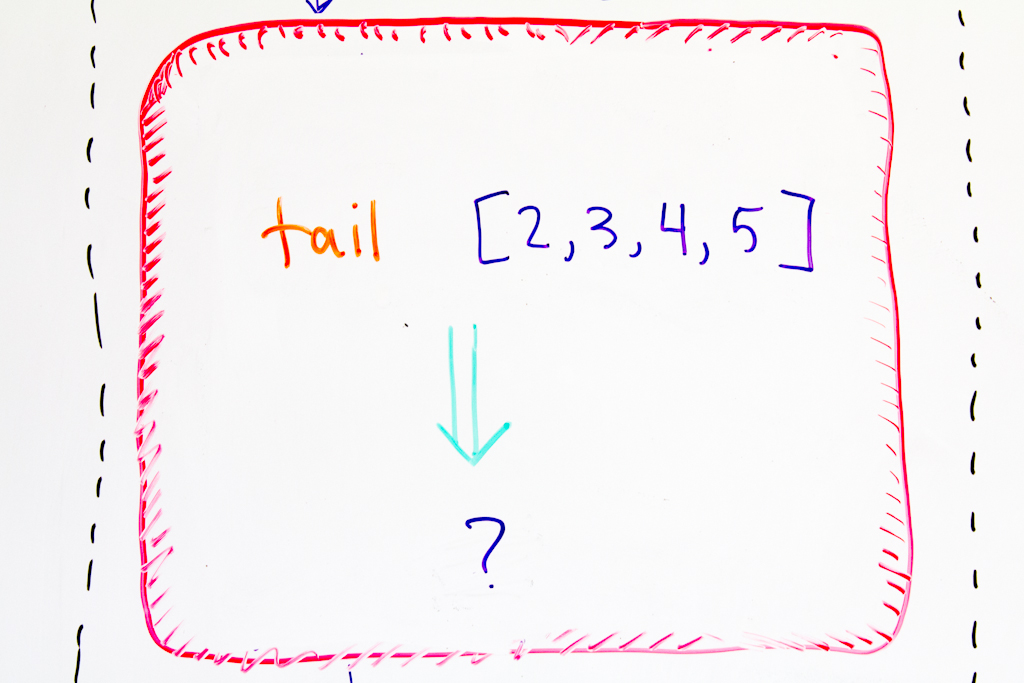 tail [2,3,4,5]
?